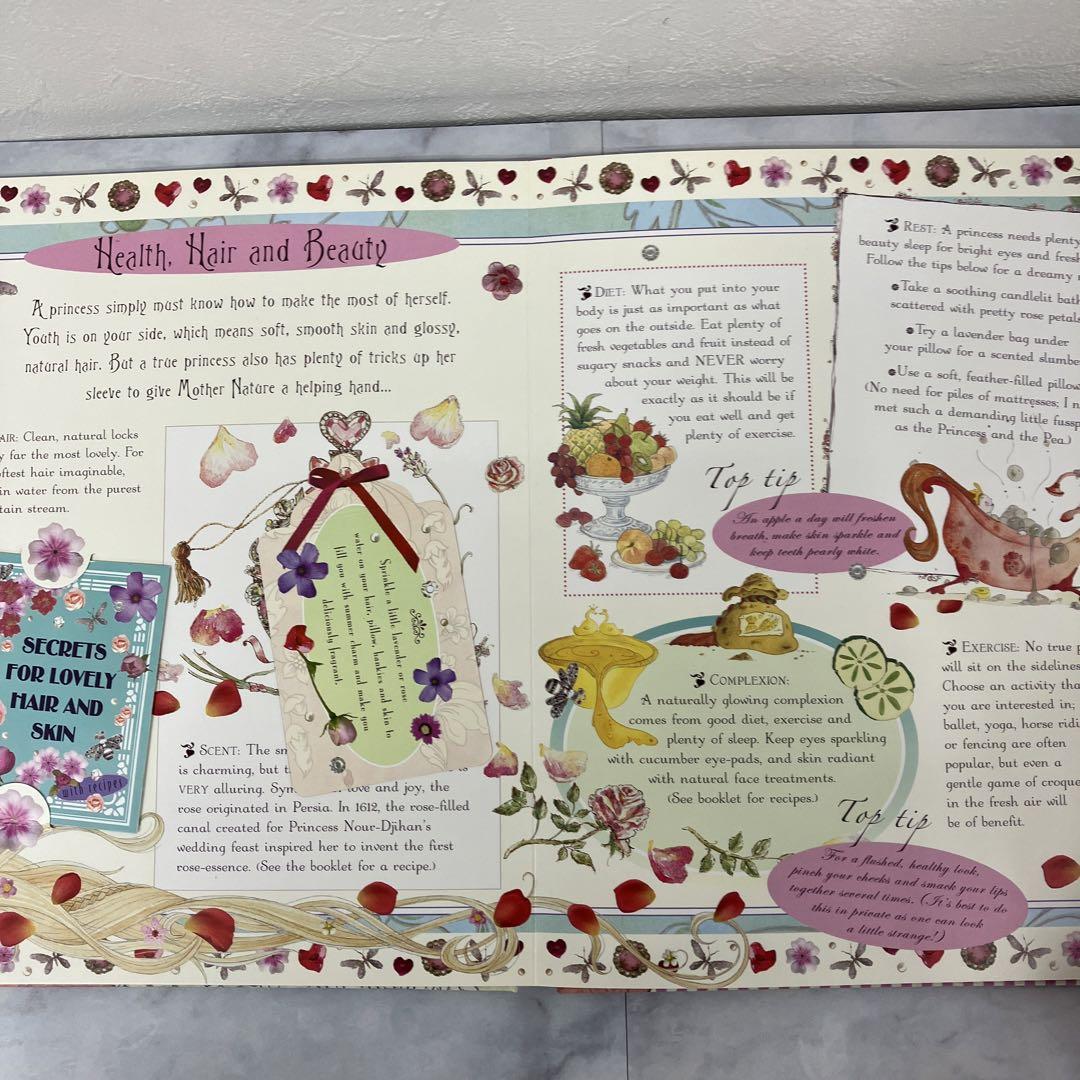 Health, Hair and Beauty
A princess simply must know how to make the most of herself.
Youth is on your side, which means soft, smooth skin and glossy,
natural hair. But a true princess also has plenty of tricks up her
sleeve to give Mother Nature a helping hand...
AIR: Clean, natural locks
y far the most lovely. For
ftest hair imaginable,
in water from the purest
tain stream.
SECRETS
FOR LOVELY
HAIR AND
SKIN
with recipes
Sprinkle a little lavender or rose
water on your hair, pillow, hankies and skin to
fill you with summer charm and make you
deliciously fragrant.
SCENT: The sm
is charming, but t
VERY alluring. Sym ove and joy, the
rose originated in Persia. In 1612, the rose-filled
canal created for Princess Nour-Djihan's
wedding feast inspired her to invent the first
rose-essence. (See the booklet for a recipe.)
DIET: What you put into your
body is just as important as what
goes on the outside. Eat plenty of
fresh vegetables and fruit instead of
sugary snacks and NEVER worry
about your weight. This will be
exactly as it should be if
you eat well and get
plenty of exercise.
Top tip
An apple a day will freshen
breath, make skin sparkle and
keep teeth pearly white.
COMPLEXION:
A naturally glowing complexion
comes from good diet, exercise and
plenty of sleep. Keep eyes sparkling
with cucumber eye-pads, and skin radiant
with natural face treatments.
(See booklet for recipes.)
Top tip
For a flushed, healthy look,
pinch your cheeks and smack your lips
together several times. (It's best to do
this in private as one can look
a little strange!)
REST: A princess needs plenty
beauty sleep for bright eyes and fresh
Follow the tips below for a dreamy n
Take a soothing candlelit bath
scattered with pretty rose petals
Try a lavender bag under
your pillow for a scented slumbe
Use a soft, feather-filled pillow
(No need for piles of mattresses; I n
met such a demanding little fussp
as the Princess and the Pea.)
EXERCISE: No true p
will sit on the sidelines
Choose an activity tha
you are interested in;
ballet, yoga, horse ridi
or fencing are often
popular, but even a
gentle game of croque
in the fresh air will
be of benefit.